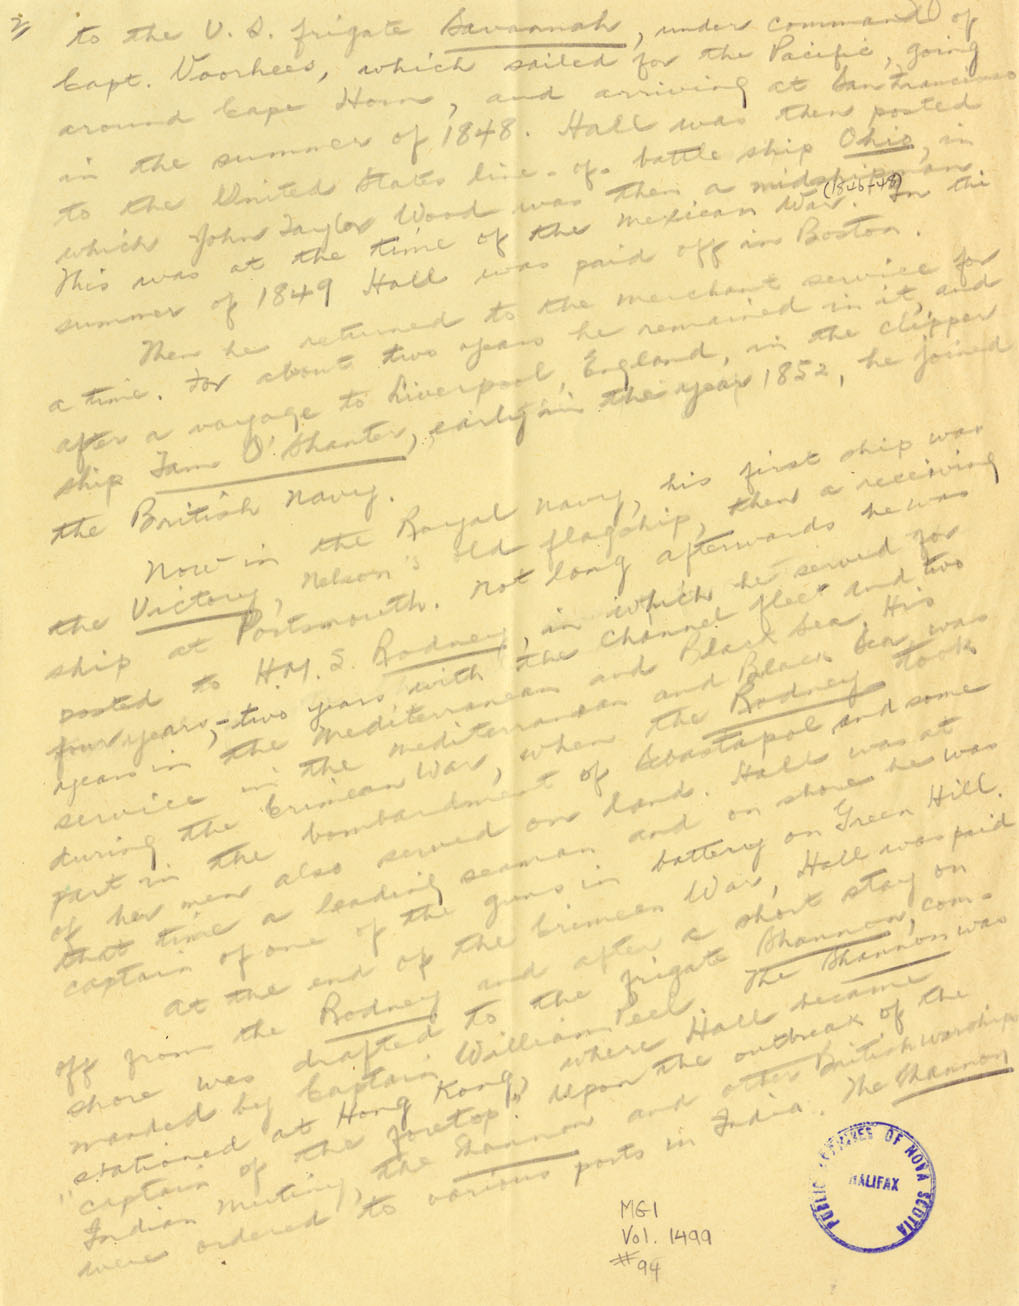 2/
to the U.S. frigate Savannah, under command of
Capt. Voorhees, which sailed for the Pacific, going
around Cape Horn, and arriving at San Francisco
in the summer of 1848. Hall was then posted
to the United States line-of-battle ship Ohio, in
which John Taylor Wood was then a midshipman
This was at the time of the Mexican War. (1846-48) In the
summer of 1849 Hall was paid off in Boston.
Then he returned to the merchant service for
a time. For about two years he remained in it, and
after a voyage to Liverpool, England, in the clipper
ship Tam O'Shanter, early in the year 1852, he joined
the British Navy.
Now in the Royal Navy, his first ship was
the Victory, Nelson's old flagship, then a receiving
ship at Portsmouth. Not long afterwards he was
posted to H.M.S. Rodney, in which he served for
four years,-two years with the Channel fleet and two
years in the Mediterranean and Black Sea. His
service in the Mediterranean and Black Sea was
during the Crimean War, when the Rodney took
part in the bombardment of Sebastapol and some
of her men also served on land. Hall was at
that time a leading seaman and on shore he was
captain of one of the guns in battery on Green Hill.
At the end of the Crimean War, Hall was paid
off from the Rodney and after a short stay on
shore was drafted to the frigate Shannon, com-
manded by Captain William Peel. The Shannon was
stationed at Hong Kong, where Hall became
"captain of the foretop." Upon the outbreak of the
Indian Mutiny, the Shannon and other British warships
were ordered to various ports in India. The Shannon
MG1
Vol. 1499
#94
PUBLIC ARCHIVES OF NOVA SCOTIA
HALIFAX